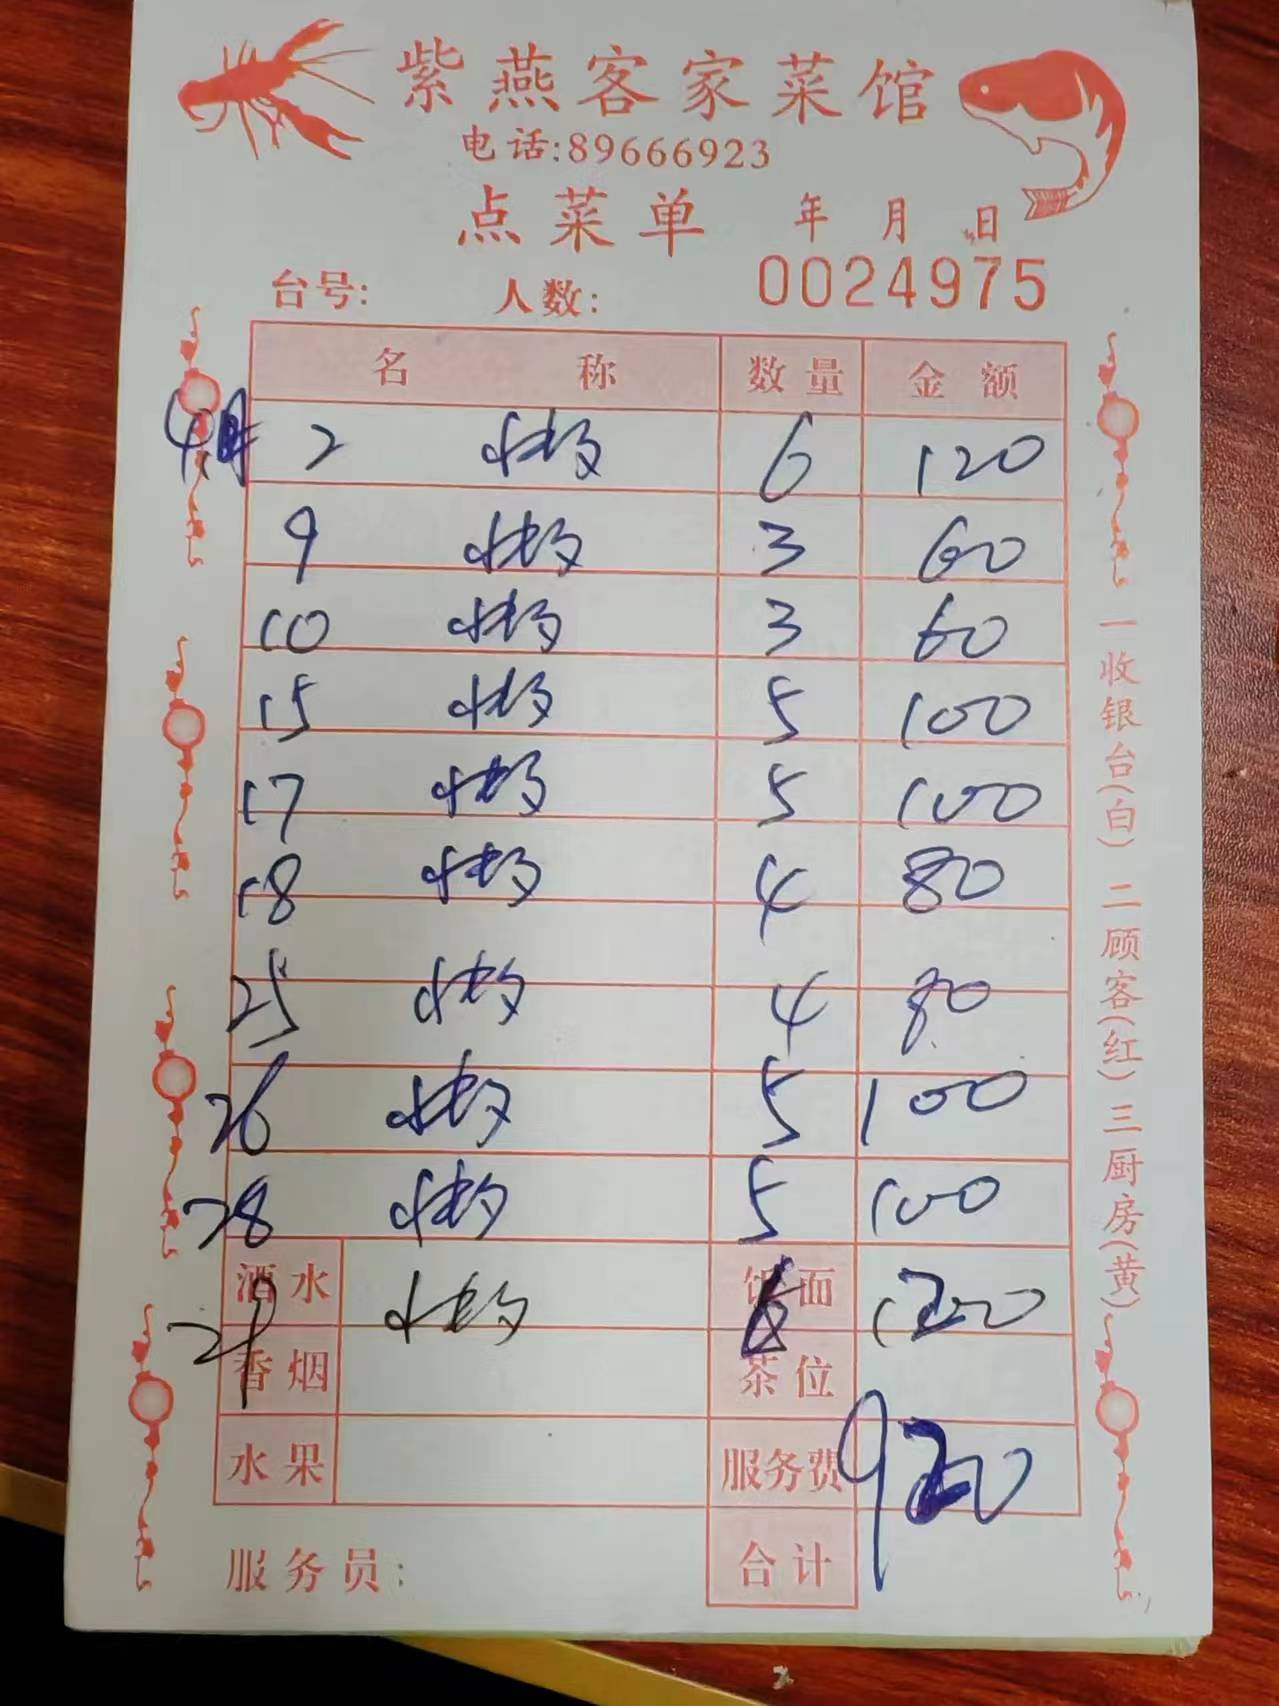 紫燕客家菜馆
电话:89666923
点菜单 年 月 日
台号: 人数: 0024975
名 称 数量 金额
4月 2 快 6 120
9 快 3 60
10 快 3 60
15 快 5 100
17 快 5 100
18 快 4 80
25 快 4 80
26 快 5 100
28 快 5 100
酒水 饭面
29 快 6 120
香烟 茶位
水果 服务费 920
服务员: 合计
一收银台(白) 二顾客(红) 三厨房(黄)